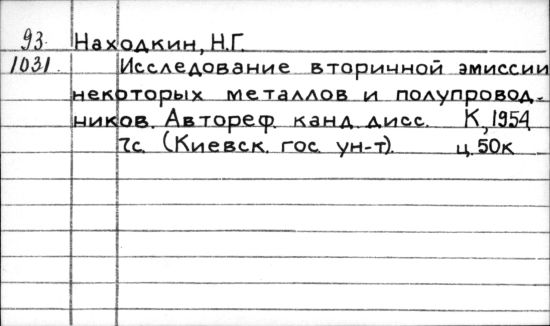 93. Находкин, Н.Г.
1031. Исследование вторичной эмиссии
некоторых металлов и полупровод-
ников. Автореф. канд. дисс. К, 1954
7с. (Киевск. гос. ун-т). ц. 50к